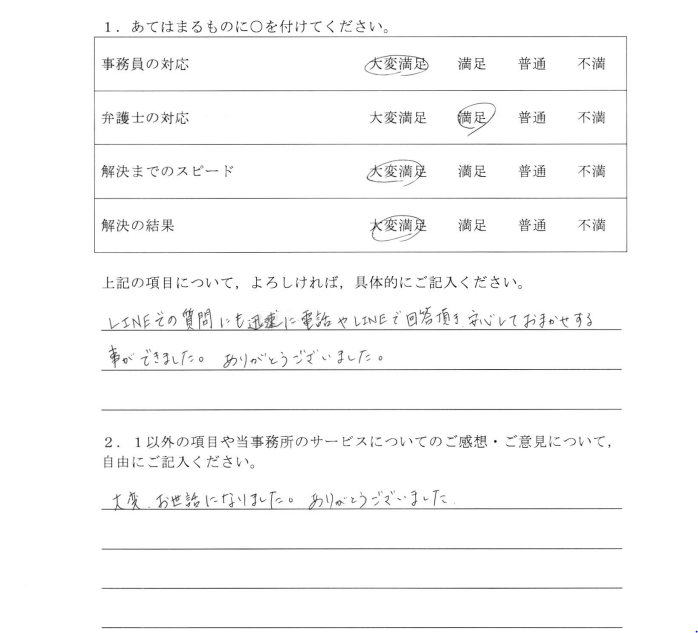 1．あてはまるものに○を付けてください。
事務員の対応 大変満足 満足 普通 不満
弁護士の対応 大変満足 満足 普通 不満
解決までのスピード 大変満足 満足 普通 不満
解決の結果 大変満足 満足 普通 不満
上記の項目について，よろしければ，具体的にご記入ください。
LINEでの質問にも迅速に電話やLINEで回答頂き安心しておまかせする
事ができました。ありがとうございました。
2．1以外の項目や当事務所のサービスについてのご感想・ご意見について，
自由にご記入ください。
大変、お世話になりました。ありがとうございました